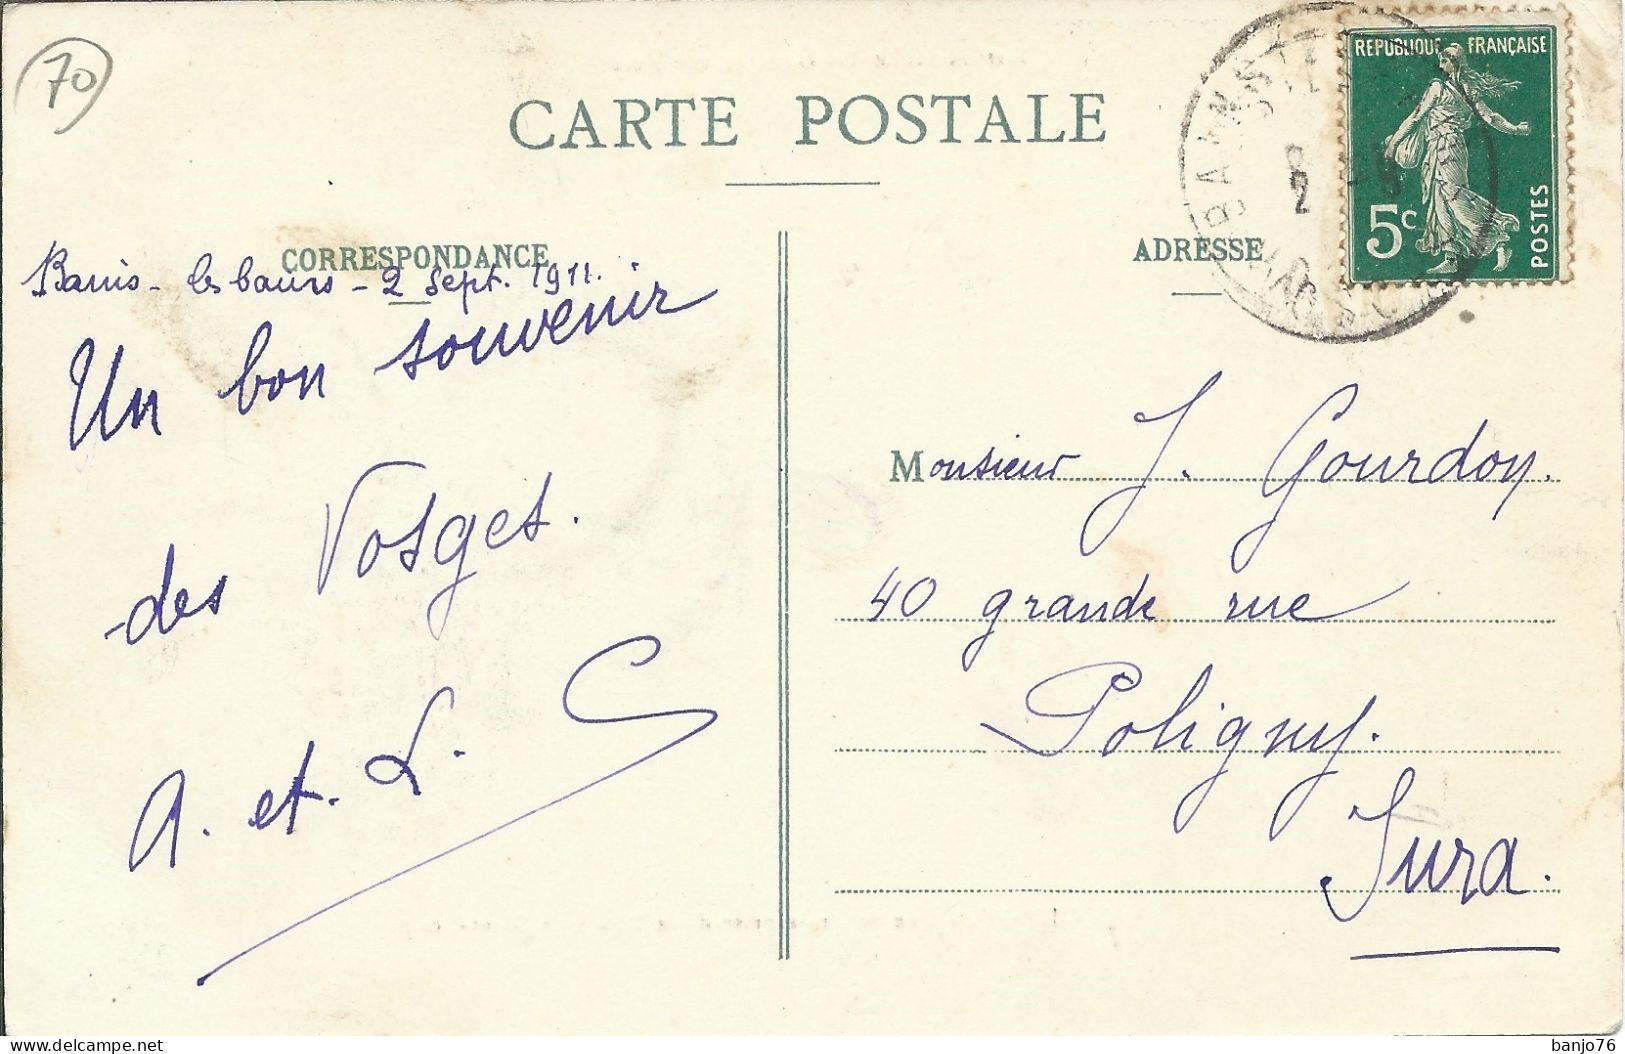 70
CARTE POSTALE
CORRESPONDANCE
Bains-les bains - 2 Sept. 1911.
Un bon souvenir
des Vosges.
A. et L. G
ADRESSE
REPUBLIQUE FRANÇAISE
5c
POSTES
Monsieur J. Gourdon.
40 grande rue
Poligny.
Jura.
banjo76